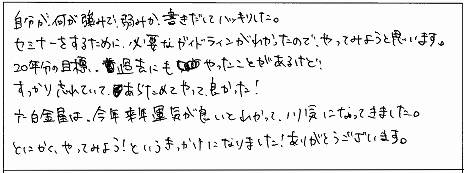 自分が何が強みで、弱みか、書きだしてハッキリした。
セミナーをするために、必要なガイドラインがわかったので、やってみようと思います。
20年分の目標、過去にもやったことがあるけど、
すっかり忘れていて、あらためてやって、良かった！
六白金星は、今年来年運気が良いとわかって、いい気になってきました。
とにかく、やってみよう！というきっかけになりました！ありがとうございます。